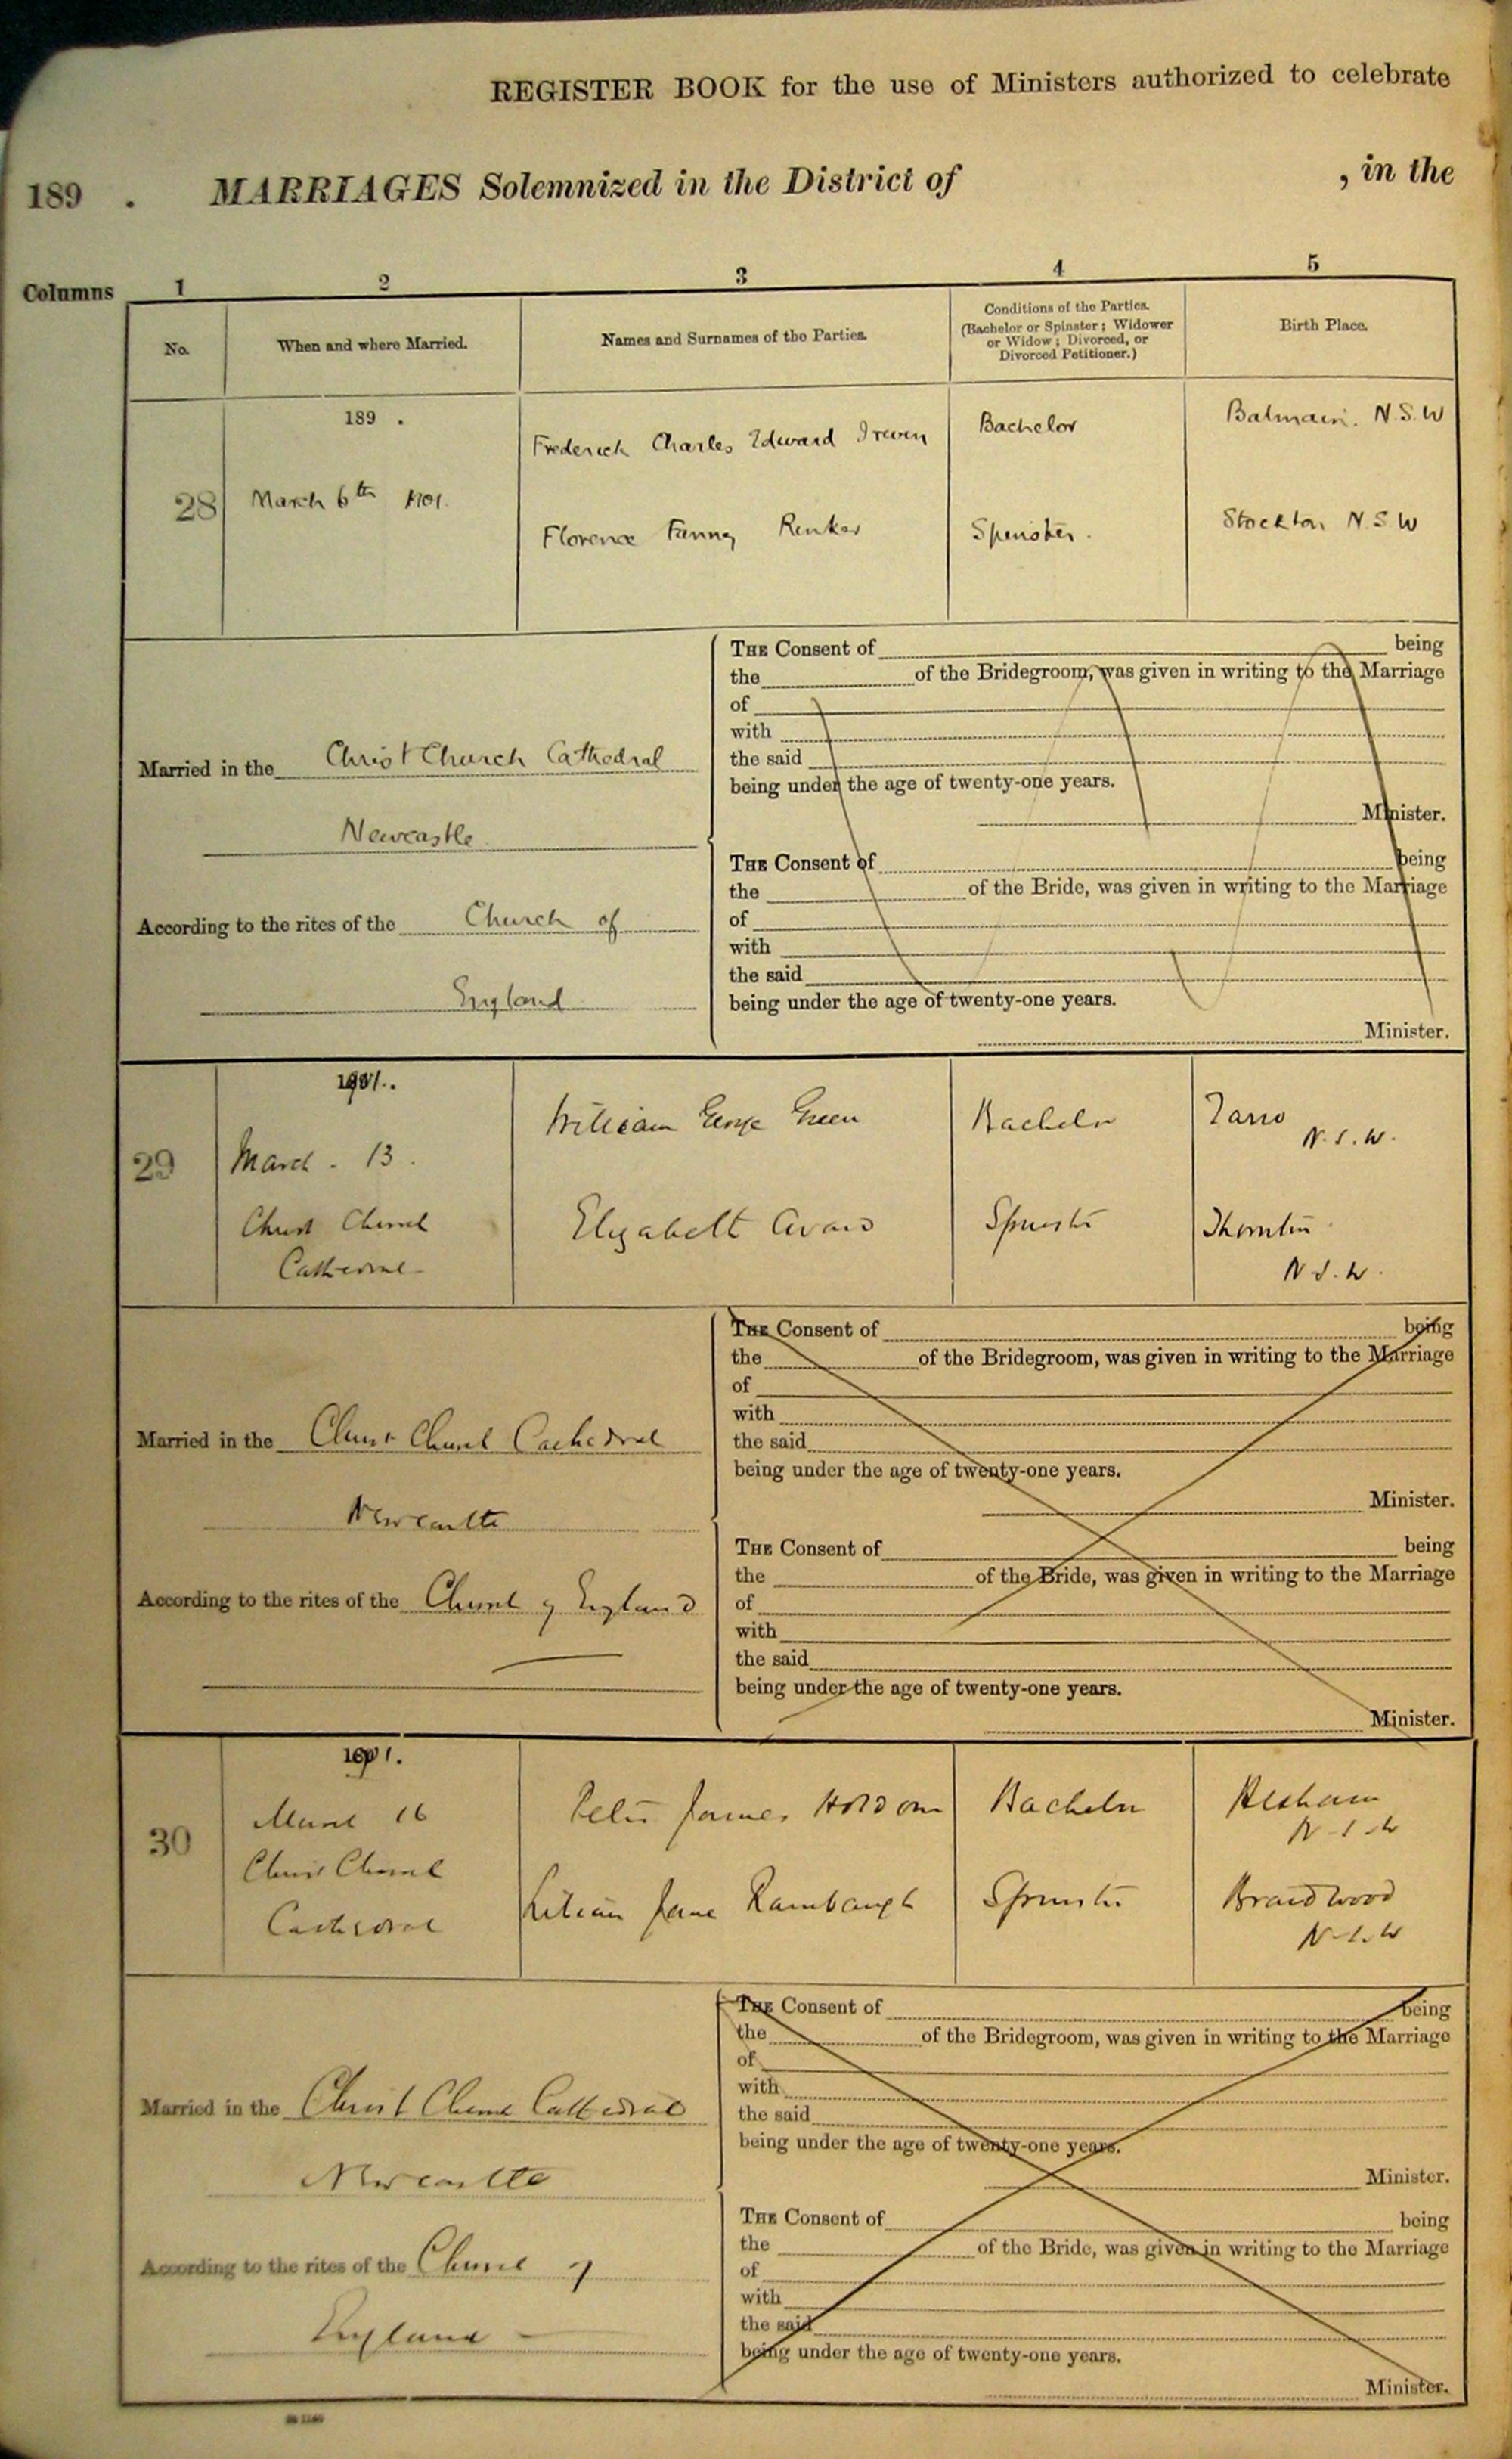 REGISTER BOOK for the use of Ministers authorized to celebrate
189 . MARRIAGES Solemnized in the District of , in the
Columns 1 2 3 4 5
No. When and where Married. Names and Surnames of the Parties. Conditions of the Parties. (Bachelor or Spinster; Widower or Widow; Divorced, or Divorced Petitioner.) Birth Place.
189 .
Frederick Charles Edward Bachelor Balmain. N.S.W
28 March 6th 1901.
Florence Fanny Spinster. Stockton N.S.W
THE Consent of being
the of the Bridegroom, was given in writing to the Marriage
of
with
Married in the Christ Church Cathedral
the said
being under the age of twenty-one years.
Minister.
Newcastle
THE Consent of being
the of the Bride, was given in writing to the Marriage
According to the rites of the Church of
of
with
the said
England
being under the age of twenty-one years.
Minister.
1901.
William George Green Bachelor Tarro
N.S.W.
29 March . 13 .
Christ Church Elizabeth Spinster Thornton
Cathedral N.S.W.
THE Consent of being
the of the Bridegroom, was given in writing to the Marriage
of
with
Married in the Christ Church Cathedral
the said
being under the age of twenty-one years.
Minister.
Newcastle
THE Consent of being
the of the Bride, was given in writing to the Marriage
According to the rites of the Church of England
of
with
the said
being under the age of twenty-one years.
Minister.
1901.
March 16 Peter James Holdom Bachelor Hexham
N.S.W
30
Christ Church Lilian Jane Rambaugh Spinster Braidwood
Cathedral N.S.W
THE Consent of being
the of the Bridegroom, was given in writing to the Marriage
of
with
Married in the Christ Church Cathedral
the said
being under the age of twenty-one years.
Minister.
Newcastle
THE Consent of being
the of the Bride, was given in writing to the Marriage
According to the rites of the Church of
of
with
the said
England
being under the age of twenty-one years.
Minister.